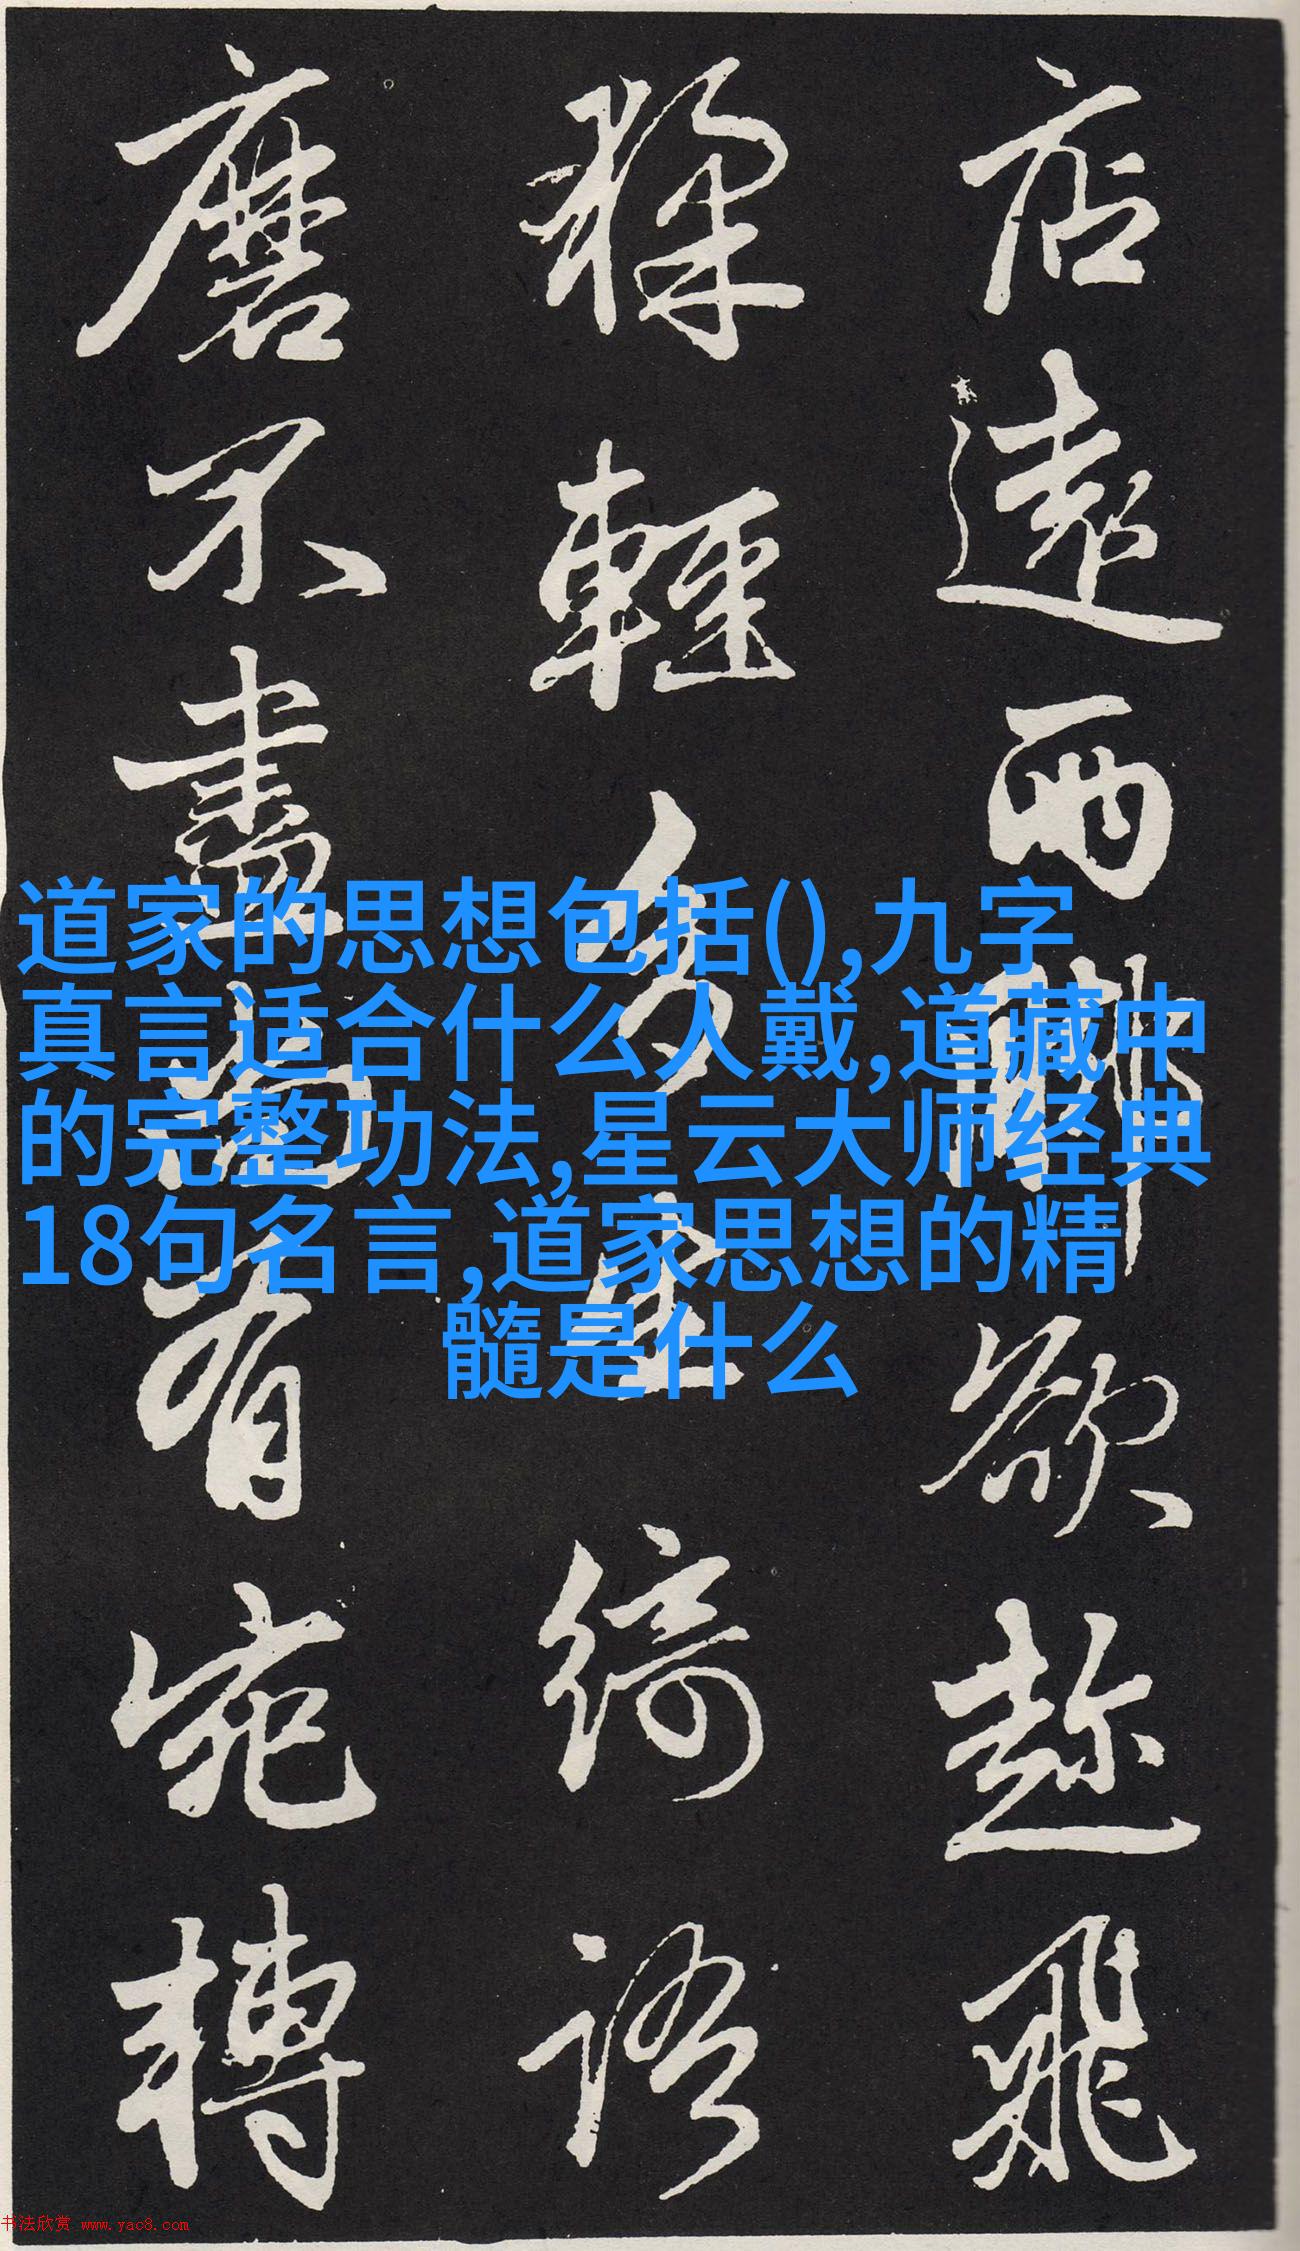 道家的思想包括(),九字
真言适合什么人戴,道藏中
的完整功法,星云大师经典
18句名言,道家思想的精
髓是什么
店遠兩脚欲趂飛
猱輕多生綺語
磨不盡尚有宛轉
书法欣赏 www.yac8.com